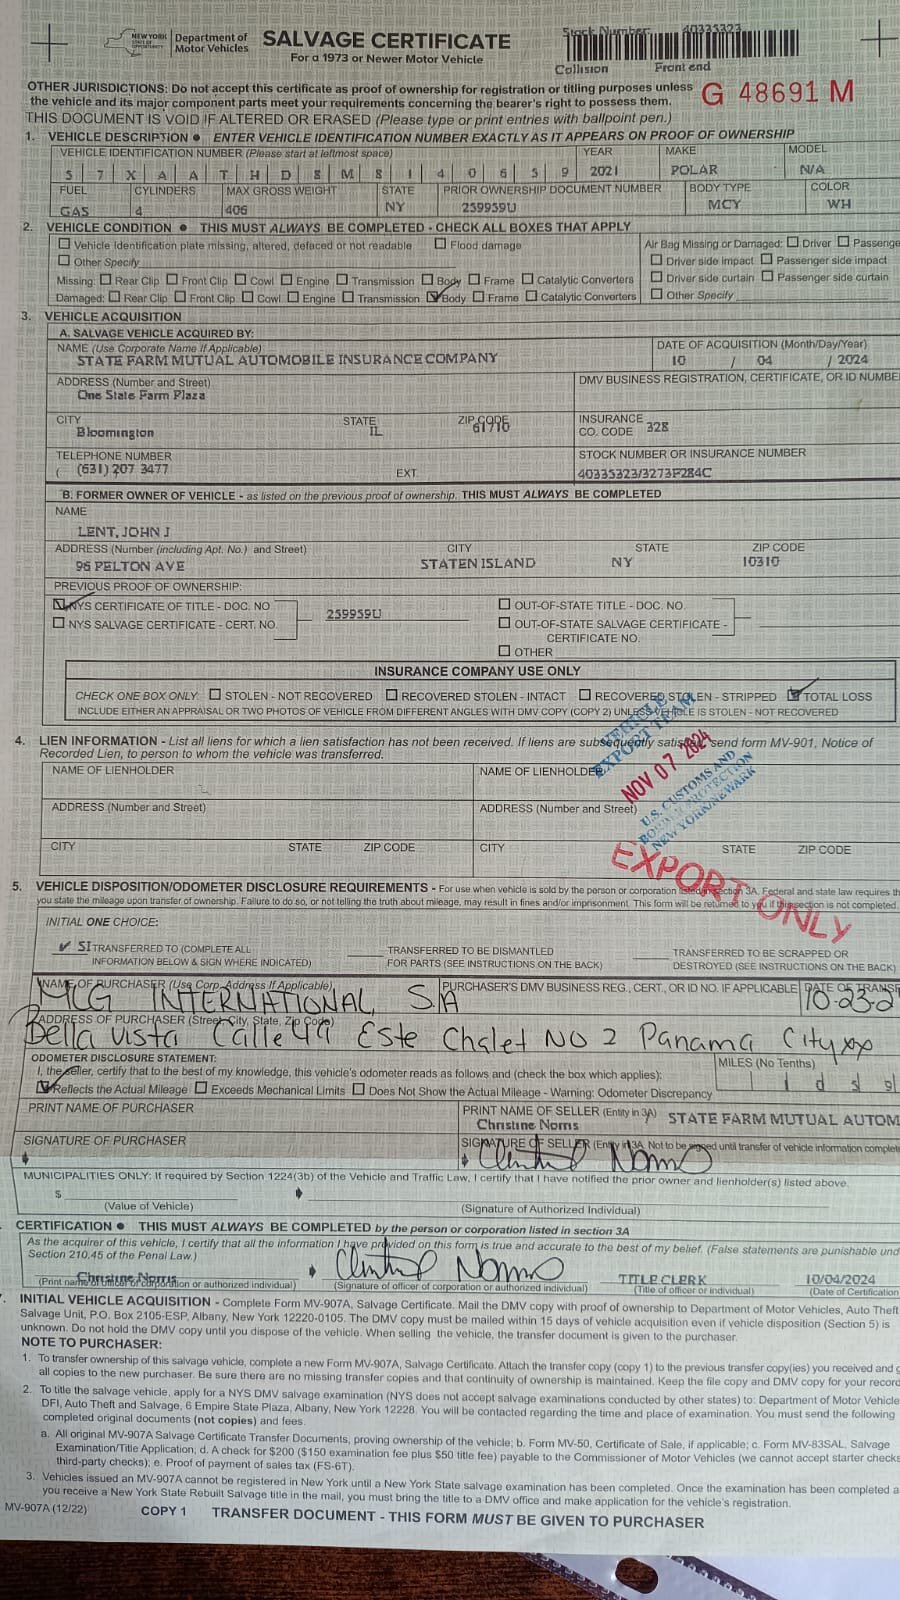 NEW YORK STATE OF OPPORTUNITY. Department of Motor Vehicles
SALVAGE CERTIFICATE
For a 1973 or Newer Motor Vehicle
Stock Number: 40335323
Collision Front end
OTHER JURISDICTIONS: Do not accept this certificate as proof of ownership for registration or titling purposes unless
the vehicle and its major component parts meet your requirements concerning the bearer's right to possess them.
G 48691 M
THIS DOCUMENT IS VOID IF ALTERED OR ERASED (Please type or print entries with ballpoint pen.)
1. VEHICLE DESCRIPTION ● ENTER VEHICLE IDENTIFICATION NUMBER EXACTLY AS IT APPEARS ON PROOF OF OWNERSHIP
VEHICLE IDENTIFICATION NUMBER (Please start at leftmost space) YEAR MAKE MODEL
5 7 X A A T H D 8 M 8 1 4 0 6 5 9 2021 POLAR N/A
FUEL CYLINDERS MAX GROSS WEIGHT STATE PRIOR OWNERSHIP DOCUMENT NUMBER BODY TYPE COLOR
GAS 4 406 NY 259959U MCY WH
2. VEHICLE CONDITION ● THIS MUST ALWAYS BE COMPLETED - CHECK ALL BOXES THAT APPLY
Vehicle Identification plate missing, altered, defaced or not readable Flood damage Air Bag Missing or Damaged: Driver Passenge
Other Specify Driver side impact Passenger side impact
Missing: Rear Clip Front Clip Cowl Engine Transmission Body Frame Catalytic Converters Driver side curtain Passenger side curtain
Damaged: Rear Clip Front Clip Cowl Engine Transmission Body Frame Catalytic Converters Other Specify
3. VEHICLE ACQUISITION
A. SALVAGE VEHICLE ACQUIRED BY:
NAME (Use Corporate Name if Applicable) DATE OF ACQUISITION (Month/Day/Year)
STATE FARM MUTUAL AUTOMOBILE INSURANCE COMPANY 10 / 04 / 2024
ADDRESS (Number and Street) DMV BUSINESS REGISTRATION, CERTIFICATE, OR ID NUMBE
One State Farm Plaza
CITY STATE ZIP CODE INSURANCE CO. CODE 328
Bloomington IL 61710
TELEPHONE NUMBER STOCK NUMBER OR INSURANCE NUMBER
( (631) 207 3477 EXT. 40335323/3273F284C
B. FORMER OWNER OF VEHICLE - as listed on the previous proof of ownership. THIS MUST ALWAYS BE COMPLETED
NAME
LENT, JOHN J
ADDRESS (Number (including Apt. No.) and Street) CITY STATE ZIP CODE
96 PELTON AVE STATEN ISLAND NY 10310
PREVIOUS PROOF OF OWNERSHIP:
NYS CERTIFICATE OF TITLE - DOC. NO 259959U OUT-OF-STATE TITLE - DOC. NO.
NYS SALVAGE CERTIFICATE - CERT. NO. OUT-OF-STATE SALVAGE CERTIFICATE -
CERTIFICATE NO.
OTHER
INSURANCE COMPANY USE ONLY
CHECK ONE BOX ONLY: STOLEN - NOT RECOVERED RECOVERED STOLEN - INTACT RECOVERED STOLEN - STRIPPED TOTAL LOSS
INCLUDE EITHER AN APPRAISAL OR TWO PHOTOS OF VEHICLE FROM DIFFERENT ANGLES WITH DMV COPY (COPY 2) UNLESS VEHICLE IS STOLEN - NOT RECOVERED
VEHICLE
EXPORT TEAM
NOV 07 2024
U.S. CUSTOMS AND
BORDER PROTECTION
NEW YORK/NEWARK
EXPORT ONLY
4. LIEN INFORMATION - List all liens for which a lien satisfaction has not been received. If liens are subsequently satisfied, send form MV-901, Notice of
Recorded Lien, to person to whom the vehicle was transferred.
NAME OF LIENHOLDER NAME OF LIENHOLDER
ADDRESS (Number and Street) ADDRESS (Number and Street)
CITY STATE ZIP CODE CITY STATE ZIP CODE
5. VEHICLE DISPOSITION/ODOMETER DISCLOSURE REQUIREMENTS - For use when vehicle is sold by the person or corporation listed in section 3A. Federal and state law requires th
you state the mileage upon transfer of ownership. Failure to do so, or not telling the truth about mileage, may result in fines and/or imprisonment. This form will be returned to you if this section is not completed.
INITIAL ONE CHOICE:
✔ SI TRANSFERRED TO (COMPLETE ALL TRANSFERRED TO BE DISMANTLED TRANSFERRED TO BE SCRAPPED OR
INFORMATION BELOW & SIGN WHERE INDICATED) FOR PARTS (SEE INSTRUCTIONS ON THE BACK) DESTROYED (SEE INSTRUCTIONS ON THE BACK)
NAME OF PURCHASER (Use Corp. Address If Applicable) PURCHASER'S DMV BUSINESS REG., CERT., OR ID NO. IF APPLICABLE DATE OF TRANSF
MCG INTERNATIONAL, SA 10-23-2
ADDRESS OF PURCHASER (Street, City, State, Zip Code)
Bella Vista Calle 49 Este Chalet NO 2 Panama City xx
ODOMETER DISCLOSURE STATEMENT:
I, the seller, certify that to the best of my knowledge, this vehicle's odometer reads as follows and (check the box which applies): MILES (No Tenths)
Reflects the Actual Mileage Exceeds Mechanical Limits Does Not Show the Actual Mileage - Warning: Odometer Discrepancy
PRINT NAME OF PURCHASER PRINT NAME OF SELLER (Entity in 3A) STATE FARM MUTUAL AUTOM
Christine Norris
SIGNATURE OF PURCHASER SIGNATURE OF SELLER (Entity in 3A. Not to be signed until transfer of vehicle information complete
MUNICIPALITIES ONLY: If required by Section 1224(3b) of the Vehicle and Traffic Law, I certify that I have notified the prior owner and lienholder(s) listed above.
$
(Value of Vehicle) (Signature of Authorized Individual)
CERTIFICATION ● THIS MUST ALWAYS BE COMPLETED by the person or corporation listed in section 3A
As the acquirer of this vehicle, I certify that all the information I have provided on this form is true and accurate to the best of my belief. (False statements are punishable und
Section 210.45 of the Penal Law.)
Christine Norris TITLE CLERK 10/04/2024
(Print name of officer of corporation or authorized individual) (Signature of officer of corporation or authorized individual) (Title of officer or individual) (Date of Certification
7. INITIAL VEHICLE ACQUISITION - Complete Form MV-907A, Salvage Certificate. Mail the DMV copy with proof of ownership to Department of Motor Vehicles, Auto Theft
Salvage Unit, P.O. Box 2105-ESP, Albany, New York 12220-0105. The DMV copy must be mailed within 15 days of vehicle acquisition even if vehicle disposition (Section 5) is
unknown. Do not hold the DMV copy until you dispose of the vehicle. When selling the vehicle, the transfer document is given to the purchaser.
NOTE TO PURCHASER:
1. To transfer ownership of this salvage vehicle, complete a new Form MV-907A, Salvage Certificate. Attach the transfer copy (copy 1) to the previous transfer copy(ies) you received and g
all copies to the new purchaser. Be sure there are no missing transfer copies and that continuity of ownership is maintained. Keep the file copy and DMV copy for your record
2. To title the salvage vehicle, apply for a NYS DMV salvage examination (NYS does not accept salvage examinations conducted by other states) to: Department of Motor Vehicle
DFI, Auto Theft and Salvage, 6 Empire State Plaza, Albany, New York 12228. You will be contacted regarding the time and place of examination. You must send the following
completed original documents (not copies) and fees.
a. All original MV-907A Salvage Certificate Transfer Documents, proving ownership of the vehicle; b. Form MV-50, Certificate of Sale, if applicable; c. Form MV-83SAL, Salvage
Examination/Title Application; d. A check for $200 ($150 examination fee plus $50 title fee) payable to the Commissioner of Motor Vehicles (we cannot accept starter checks
third-party checks); e. Proof of payment of sales tax (FS-6T).
3. Vehicles issued an MV-907A cannot be registered in New York until a New York State salvage examination has been completed. Once the examination has been completed a
you receive a New York State Rebuilt Salvage title in the mail, you must bring the title to a DMV office and make application for the vehicle's registration.
MV-907A (12/22) COPY 1 TRANSFER DOCUMENT - THIS FORM MUST BE GIVEN TO PURCHASER